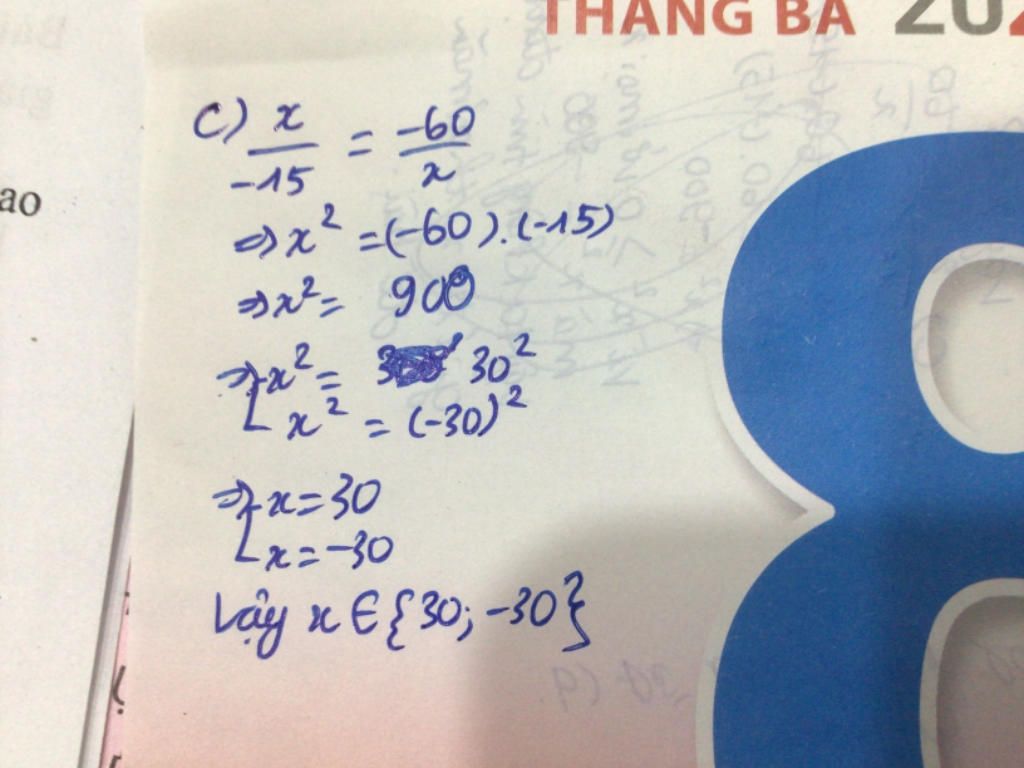 THÁNG BA 202
ao
c) x/-15 = -60/x
⇒ x² = (-60).(-15)
⇒ x² = 900
⇒ [ x² = 30²
x² = (-30)²
⇒ [ x = 30
x = -30
Vậy x ∈ {30; -30}
8